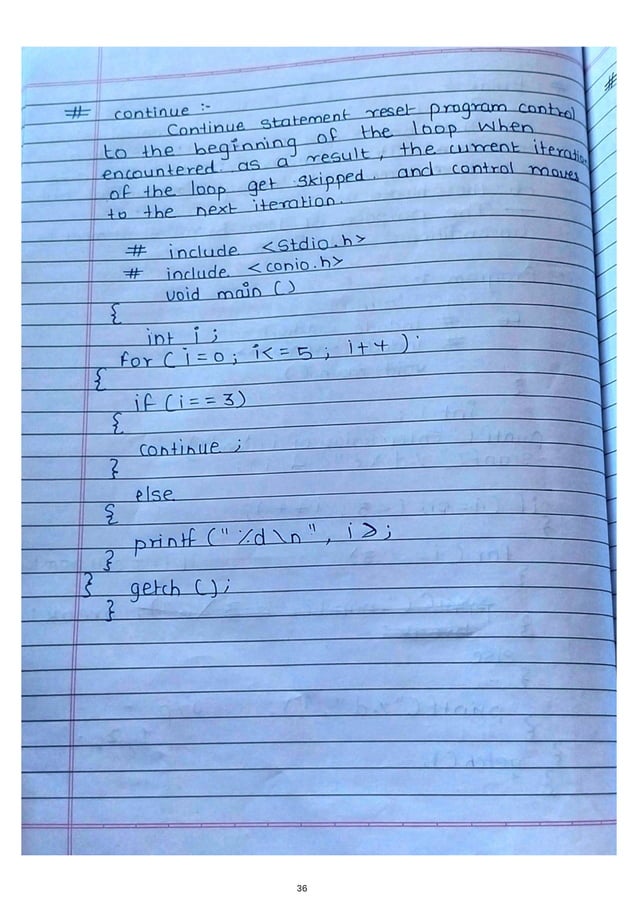 # continue :-
Continue statement reset program control
to the beginning of the loop when
encountered as a result, the current iteration
of the loop get skipped and control moves
to the next iteration.
# include <Stdio.h>
# include <conio.h>
void main ()
{
int i ;
for ( i = 0 ; i <= 5 ; i++ )
{
if (i == 3)
{
continue ;
}
else
{
printf (" %d \n ", i);
}
} getch ();
}
#
36